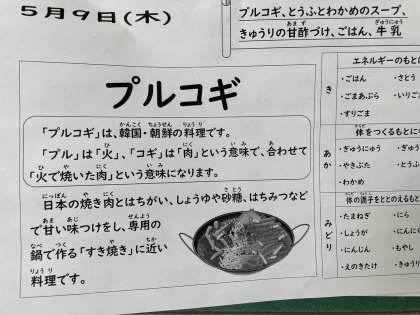 5月9日(木)
プルコギ、とうふとわかめのスープ、
きゅうりの甘酢づけ、ごはん、牛乳
プルコギ
「プルコギ」は、韓国・朝鮮の料理です。
「プル」は「火」、「コギ」は「肉」という意味で、合わせて
「火で焼いた肉」という意味になります。
日本の焼き肉とはちがい、しょうゆや砂糖、はちみつなど
で甘い味つけをし、専用の
鍋で作る「すき焼き」に近い
料理です。
エネルギーのもと
き
・ごはん ・さとう
・ごまあぶら ・いりご
・すりごま
体をつくるもとに
あか
・ぎゅうにゅう ・ぎ
・やきぶた ・とうふ
・わかめ
体の調子をととのえるもと
みどり
・たまねぎ ・にら
・しょうが ・にんに
・にんじん ・もやし
・えのきたけ ・きゅう